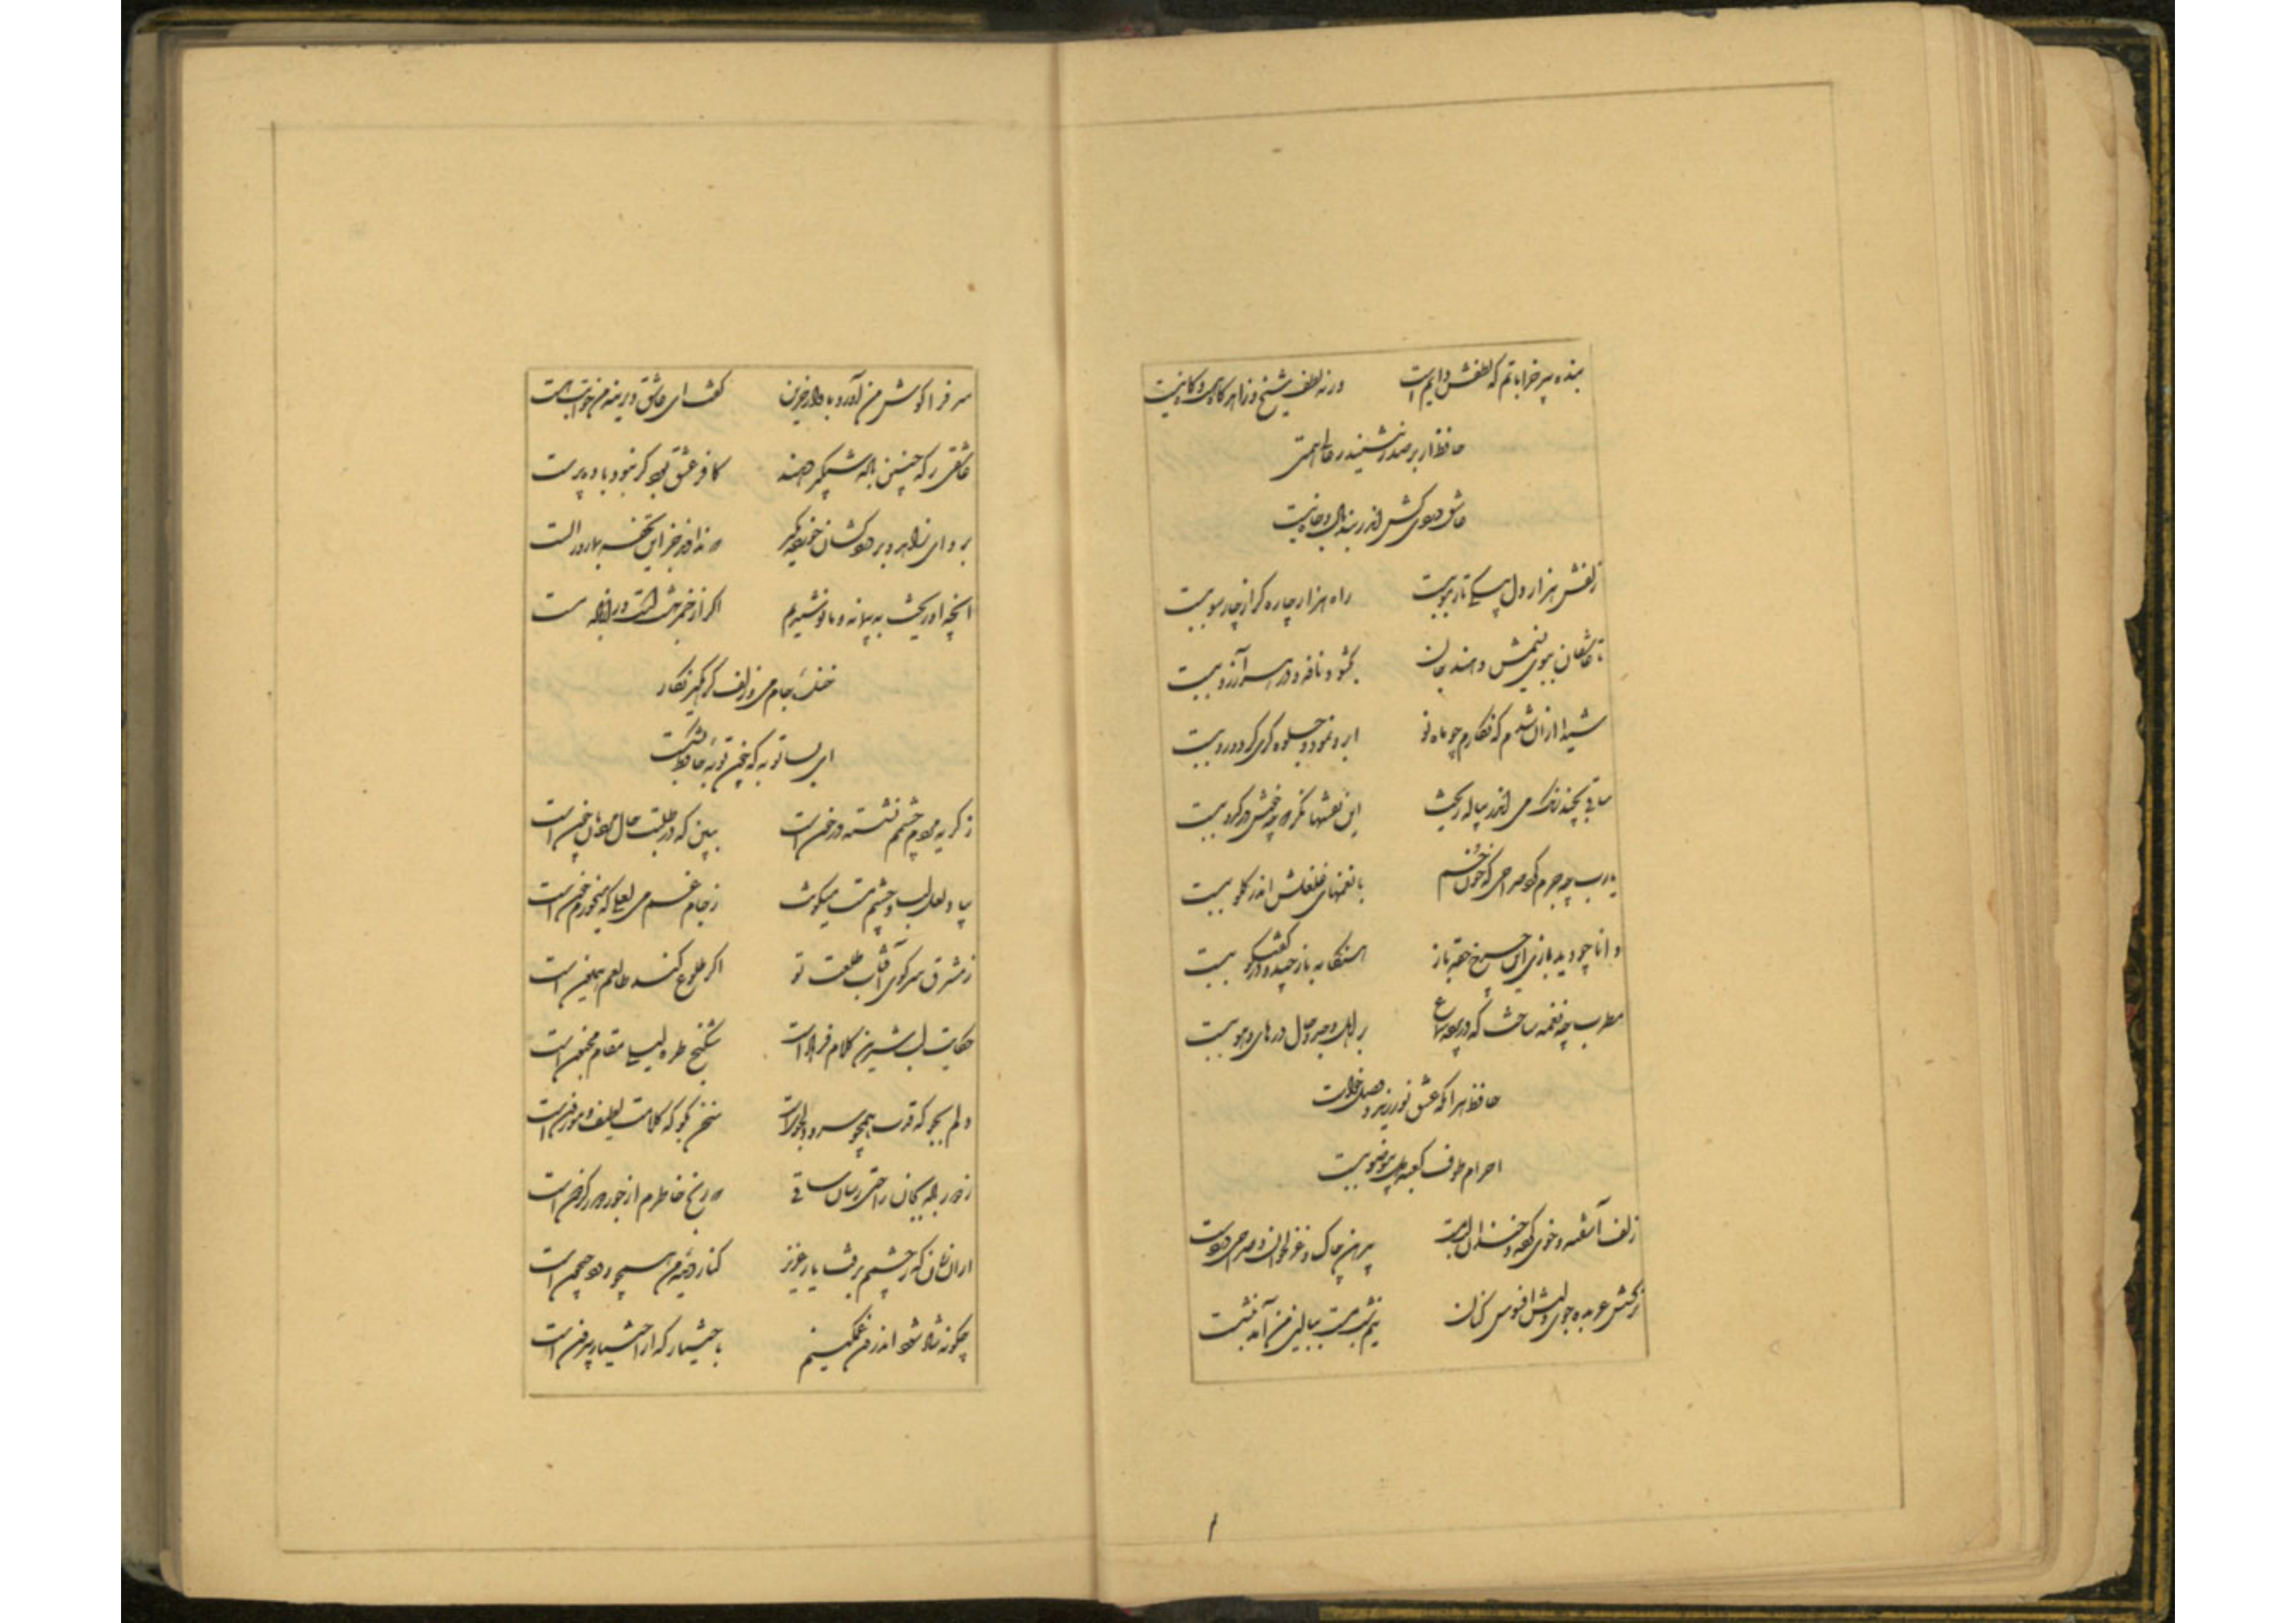 بنده پیر خراباتم که لطفش دایم است ورنه لطف شیخ و زاهد گاه هست و گاه نیست
حافظ ار بر صدر ننشیند ز عالی همتی
عاشق دردی کش اندر بند مال و جاه نیست
زلفش هزار دل بیکی تار مو ببست راه هزار چاره گر از چار سو ببست
تا عاشقان ببوی نسیمش دهند جان بگشود نافه و در هر آرزو ببست
شیدا از آن شدم که نگارم چو ماه نو ابرو نمود و جلوه گری کرد و رو ببست
ساقی بچند رنگ می اندر پیاله ریخت این نقشها نگر که چه خوش در کدو ببست
یارب چه جرم کرد صراحی که خون خم با نغمهای قلقلش اندر گلو ببست
دانا چو دید بازی این چرخ حقه باز هنگامه باز چید و در گفتگو ببست
مطرب چه نغمه ساخت که در پرده سماع بر اهل وجد و حال در های و هو ببست
حافظ هر آنکه عشق نورزید و وصل خواست
احرام طوف کعبه دل بی وضو ببست
زلف آشفته و خوی کرده و خندان لب و مست پیرهن چاک و غزل خوان و صراحی در دست
نرگسش عربده جوی و لبش افسوس کنان نیم شب مست ببالین من آمد بنشست
سر فرا گوش من آورد بآواز حزین گفت ای عاشق دیرینه من خوابت هست
عاشقی را که چنین باده شبگیر دهند کافر عشق بود گر نبود باده پرست
برو ای زاهد و بر درد کشان خرده مگیر که ندادند جز این تحفه بما روز الست
آنچه او ریخت به پیمانه ما نوشیدیم اگر از خمر بهشت است ور از باده مست
خنده جام می و زلف گره گیر نگار
ای بسا توبه که چون توبه حافظ بشکست
ز گریه مردم چشمم نشسته در خون است ببین که در طلبت حال مردمان چون است
بیاد لعل لب و چشم مست میگونت ز جام غم می لعلی که میخورم خون است
ز مشرق سر کوی آفتاب طلعت تو اگر طلوع کند طالعم همایون است
حکایت لب شیرین کلام فرهاد است شکنج طره لیلی مقام مجنون است
دلم بجو که قدت همچو سرو دلجوی است سخن بگو که کلامت لطیف و موزون است
ز دور باده بجان راحتی رسان ساقی که رنج خاطرم از جور دور گردون است
از آن زمان که ز چشمم برفت یار عزیز کنار دیده من همچو رود جیحون است
چگونه شاد شود اندرون غمگینم باختیار که از اختیار بیرون است